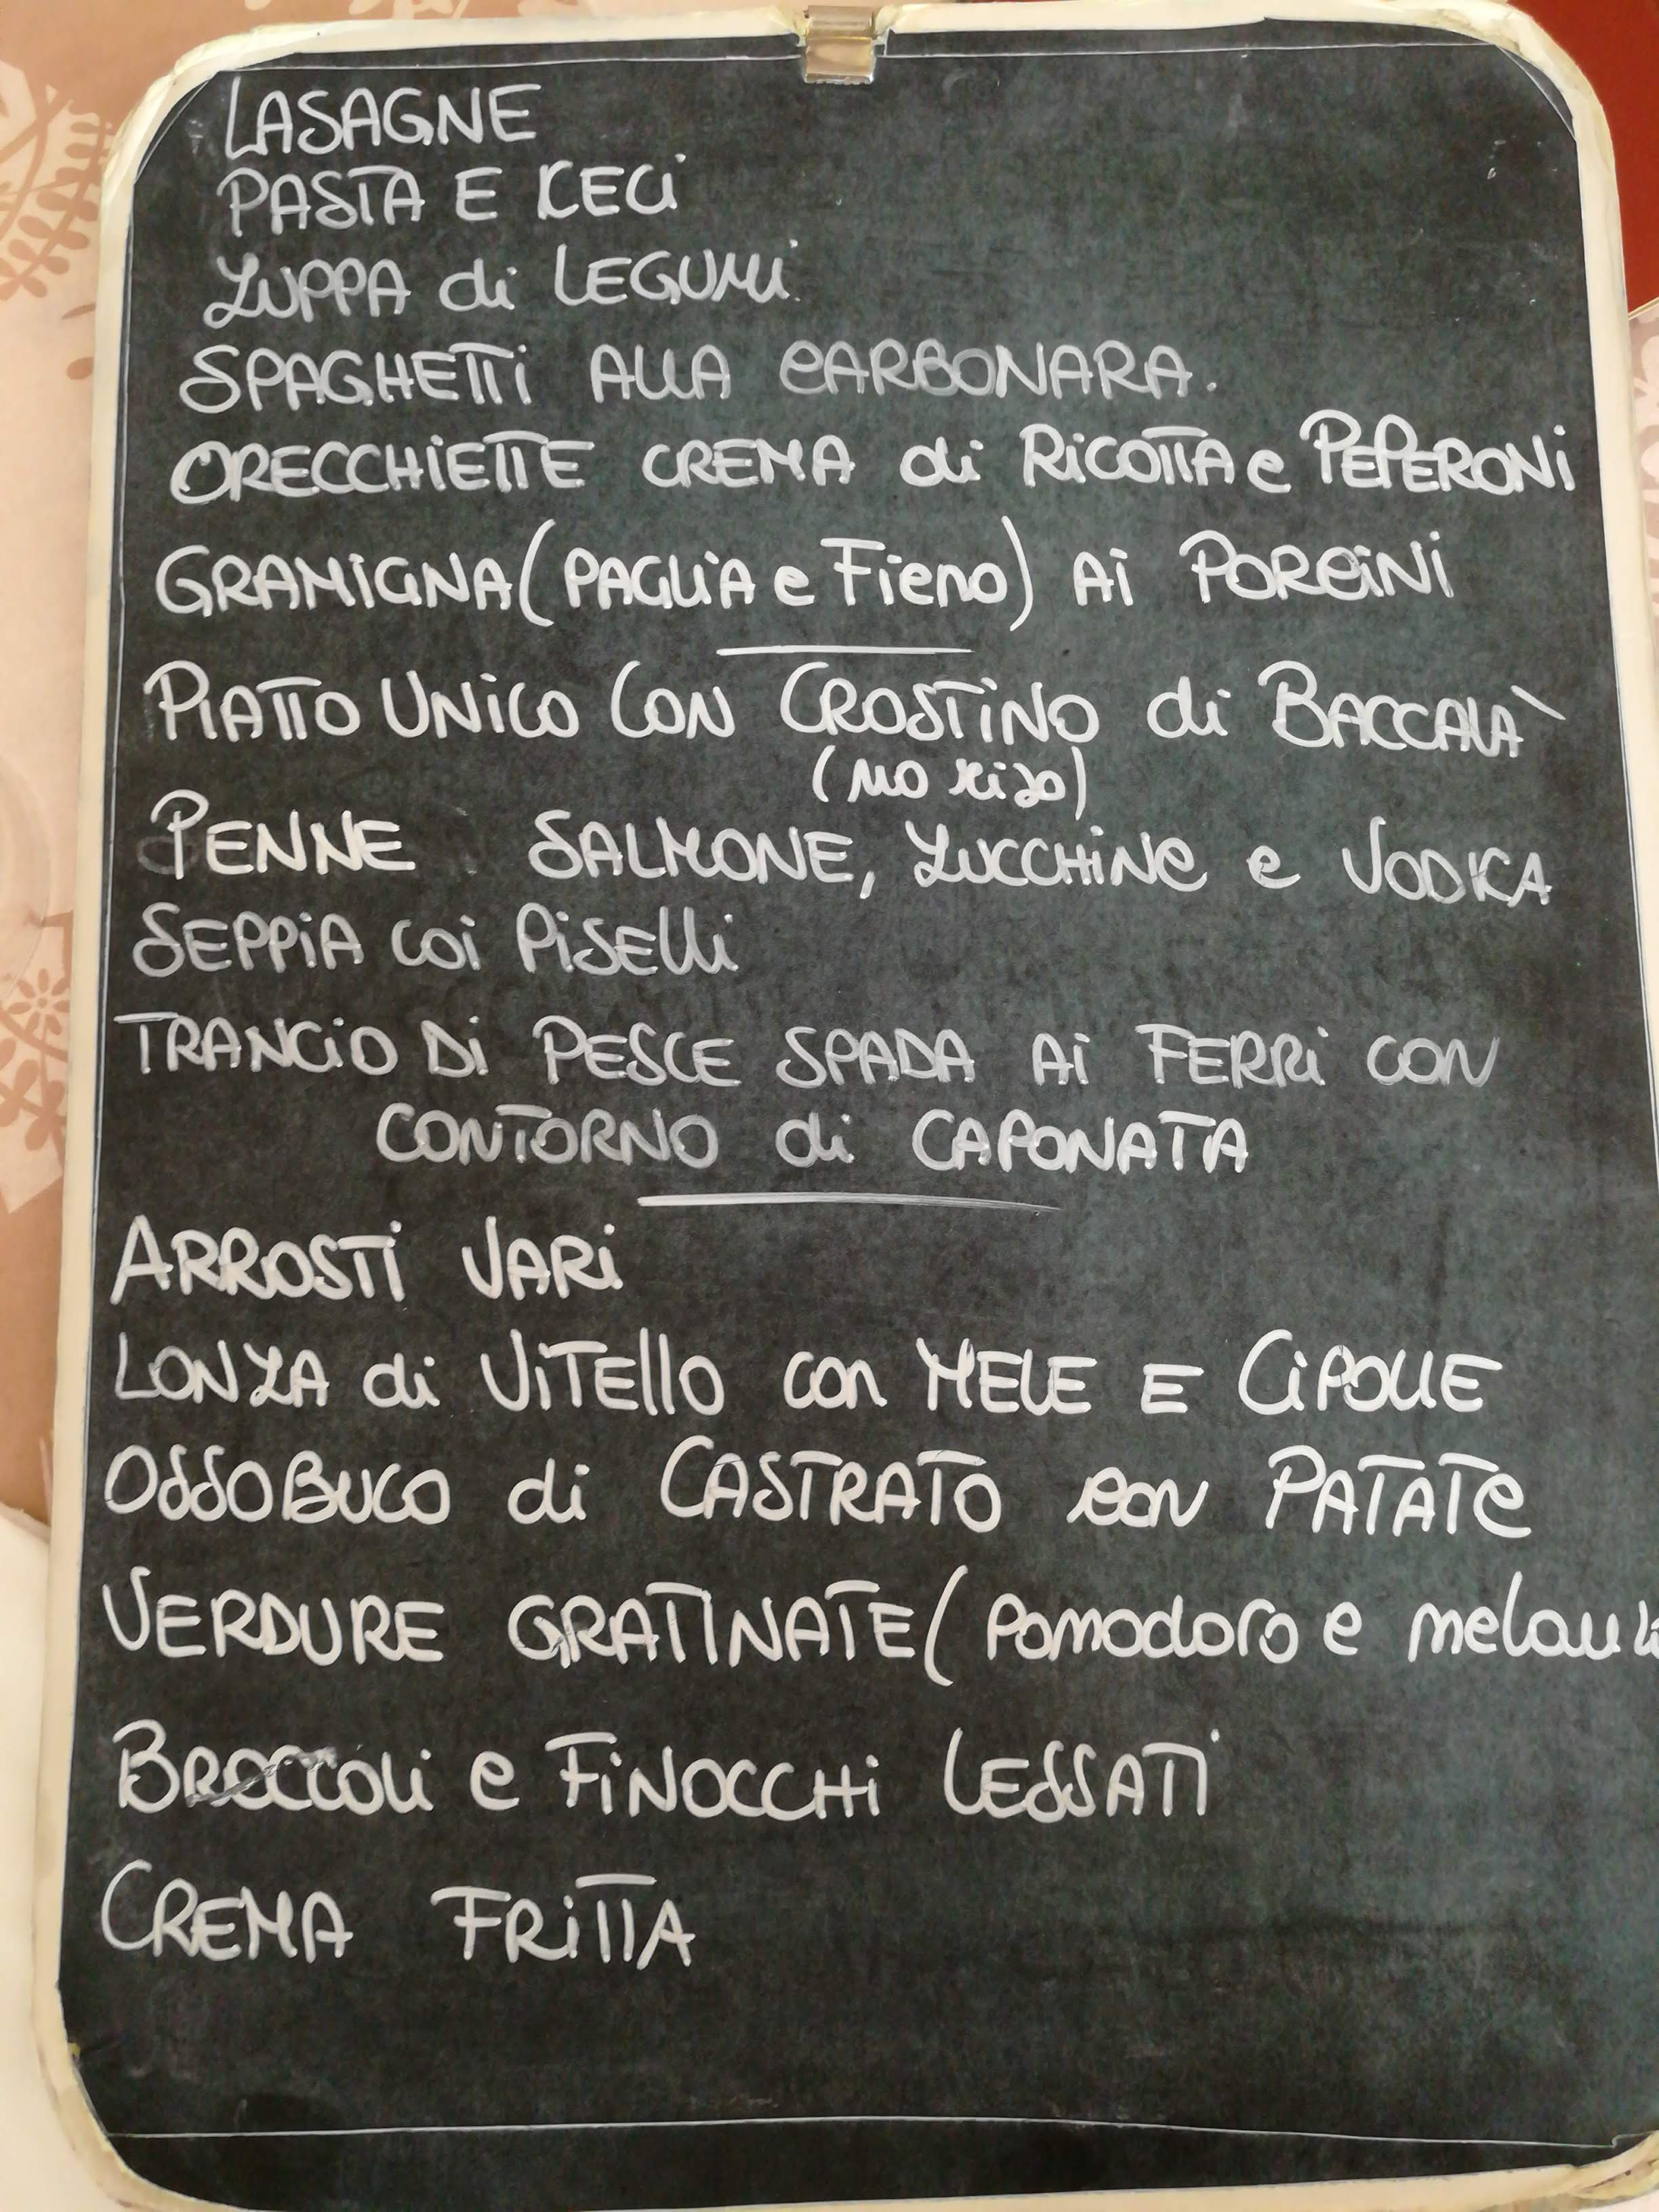 LASAGNE
PASTA E CECI
ZUPPA di LEGUMI
SPAGHETTI ALLA CARBONARA.
ORECCHIETTE CREMA di RICOTTA e PEPERONI
GRAMIGNA (PAGLIA e FIENO) AI PORCINI
PIATTO UNICO CON CROSTINO di BACCALA'
(NO riso)
PENNE SALMONE, ZUCCHINE e VODKA
SEPPIA COi PiSELLi
TRANCIO Di PESCE SPADA Ai FERRi CON
CONTORNO di CAPONATA
ARROSTI VARi
LONZA di ViTEllO con MELE E CIPOLLE
OSSOBUCO di CASTRATO CON PATATE
VERDURE GRATINATE (Pomodoro e
BROCCOLi e FiNOCCHi LESSATI
CREMA FRiTTA